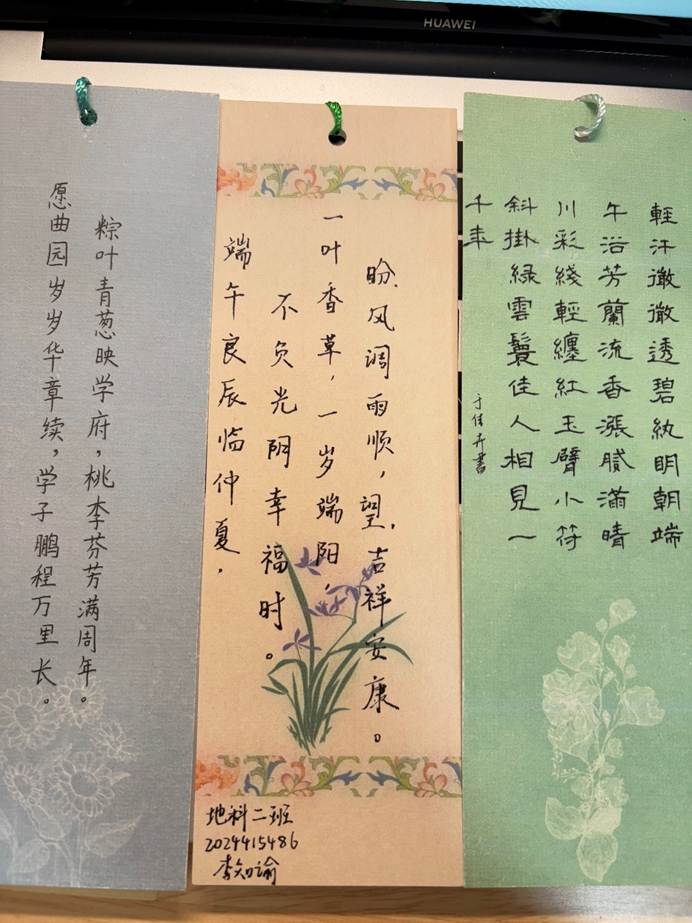 HUAWEI
粽叶青葱映学府，桃李芬芳满周年。
愿曲园岁岁华章续，学子鹏程万里长。
端午良辰临仲夏，
不负光阴幸福时。
一叶香草，一岁端阳，
盼风调雨顺，望吉祥安康。
地科二班
2024415486
李知谕
輕汗微微透碧紈明朝端
午浴芳蘭流香漲膩滿晴
川彩綫輕纏紅玉臂小符
斜掛綠雲鬟佳人相見一
千年
于佳卉書